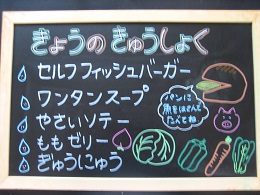 きょうの きゅうしょく
セルフフィッシュバーガー
ワンタンスープ
やさいソテー
ももゼリー
ぎゅうにゅう
パンに
魚をはさんで
たべてね